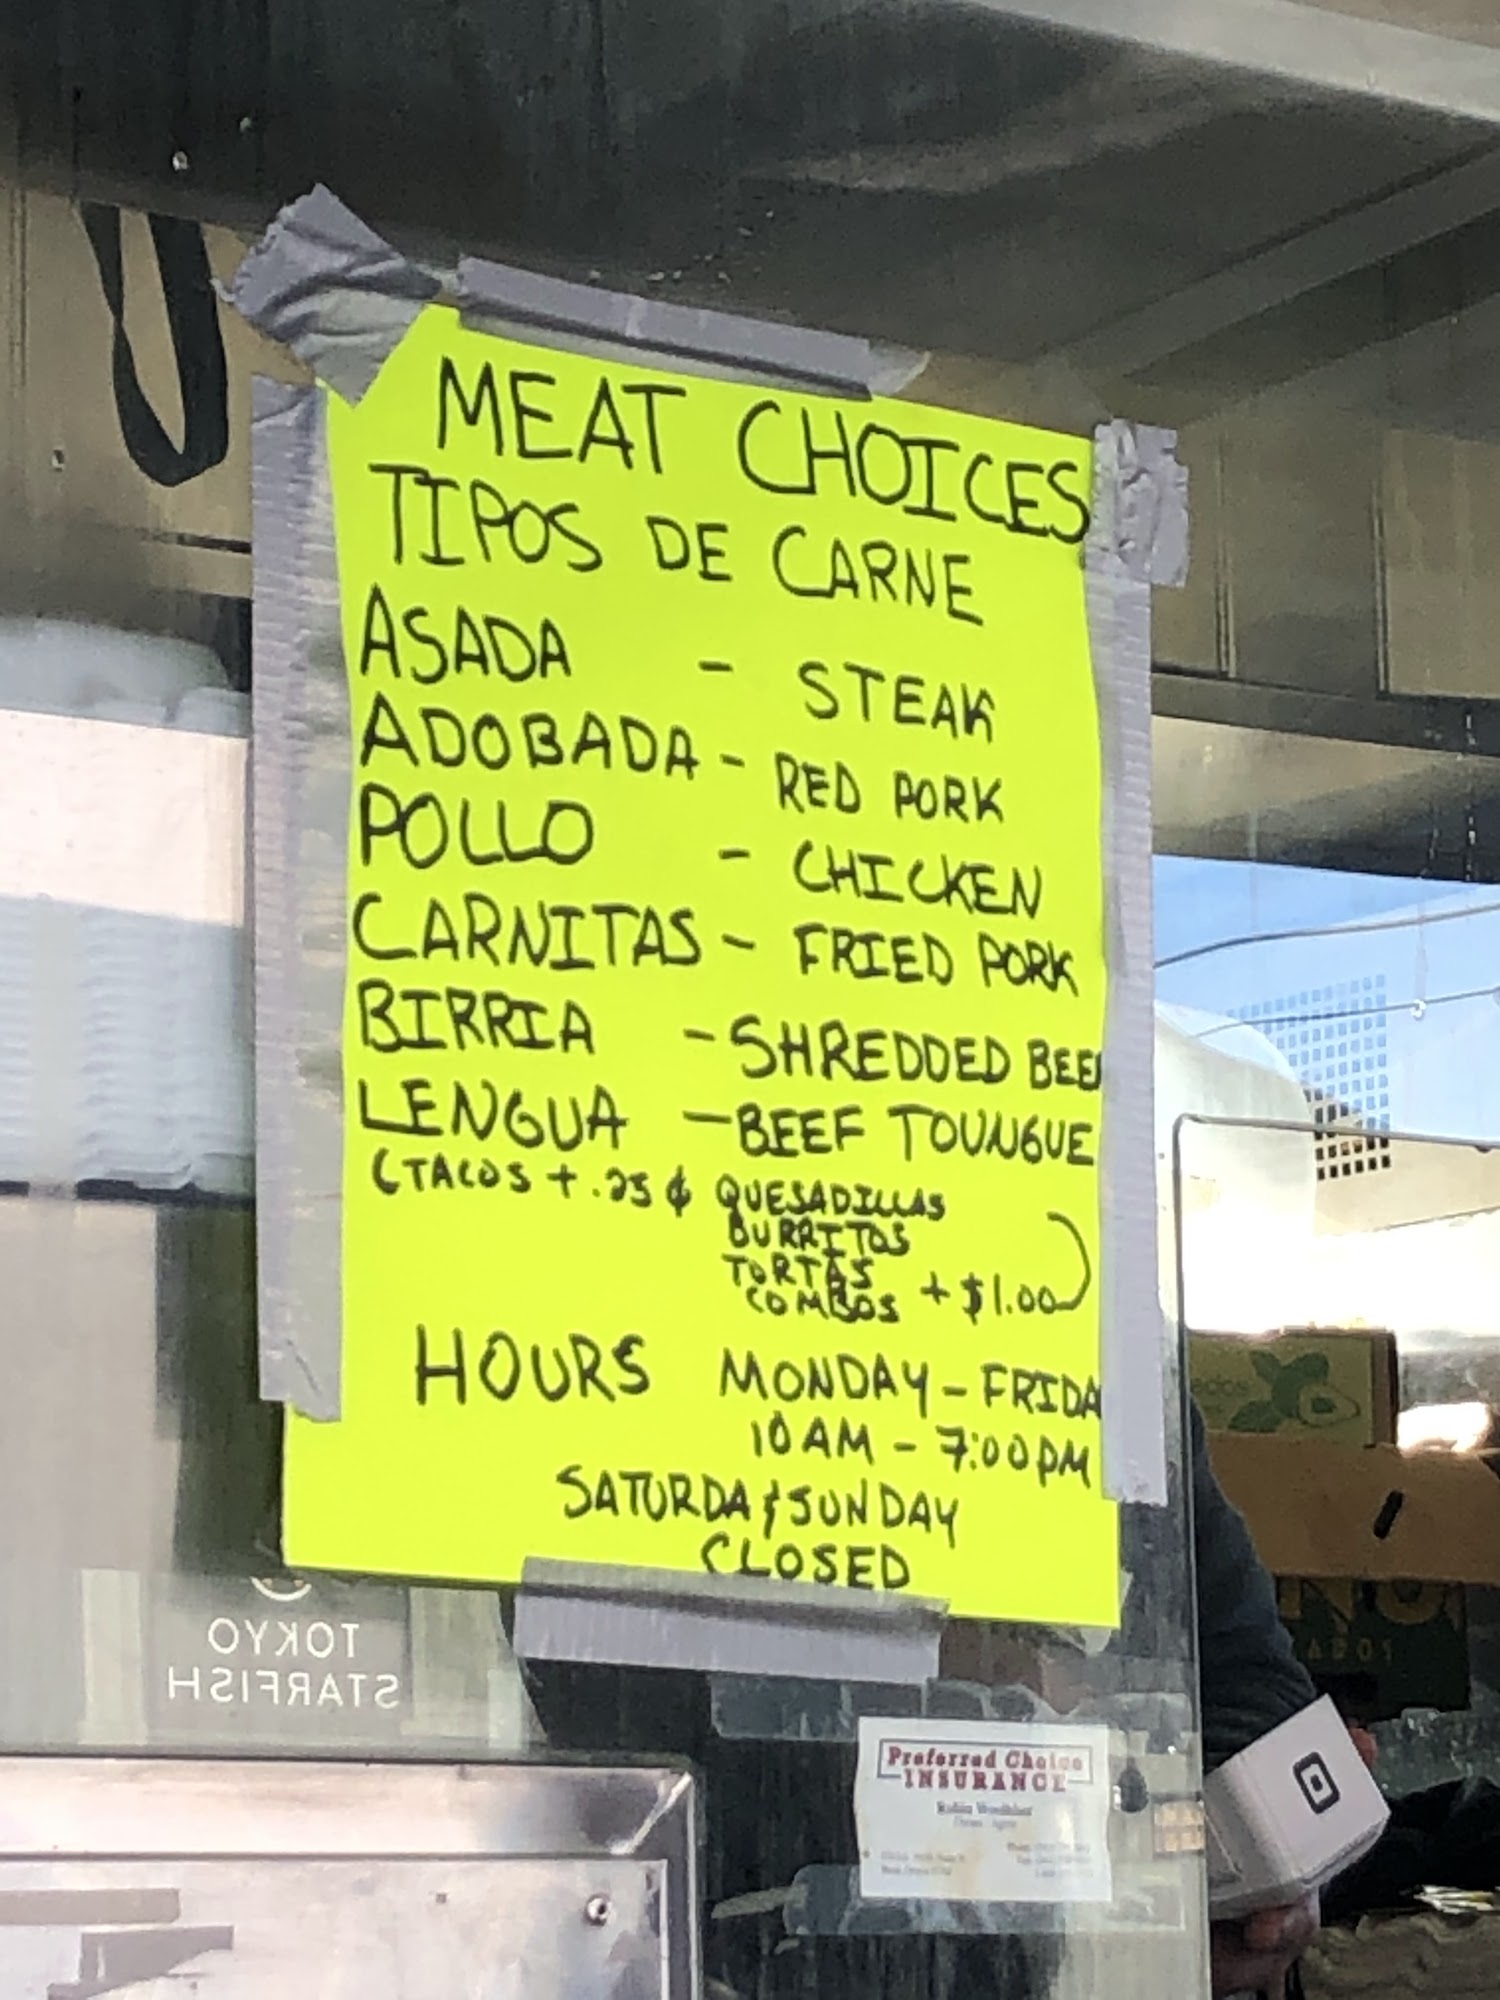 MEAT CHOICES
TIPOS DE CARNE
ASADA - STEAK
ADOBADA - RED PORK
POLLO - CHICKEN
CARNITAS - FRIED PORK
BIRRIA - SHREDDED BEEF
LENGUA - BEEF TOUNGUE
(TACOS + .25 ¢ QUESADILLAS
BURRITOS
TORTAS
COMBOS + $1.00)
HOURS MONDAY - FRIDA
10 AM - 7:00 PM
SATURDA & SUNDAY
CLOSED
TOKYO
STARFISH
Preferred Choice
INSURANCE